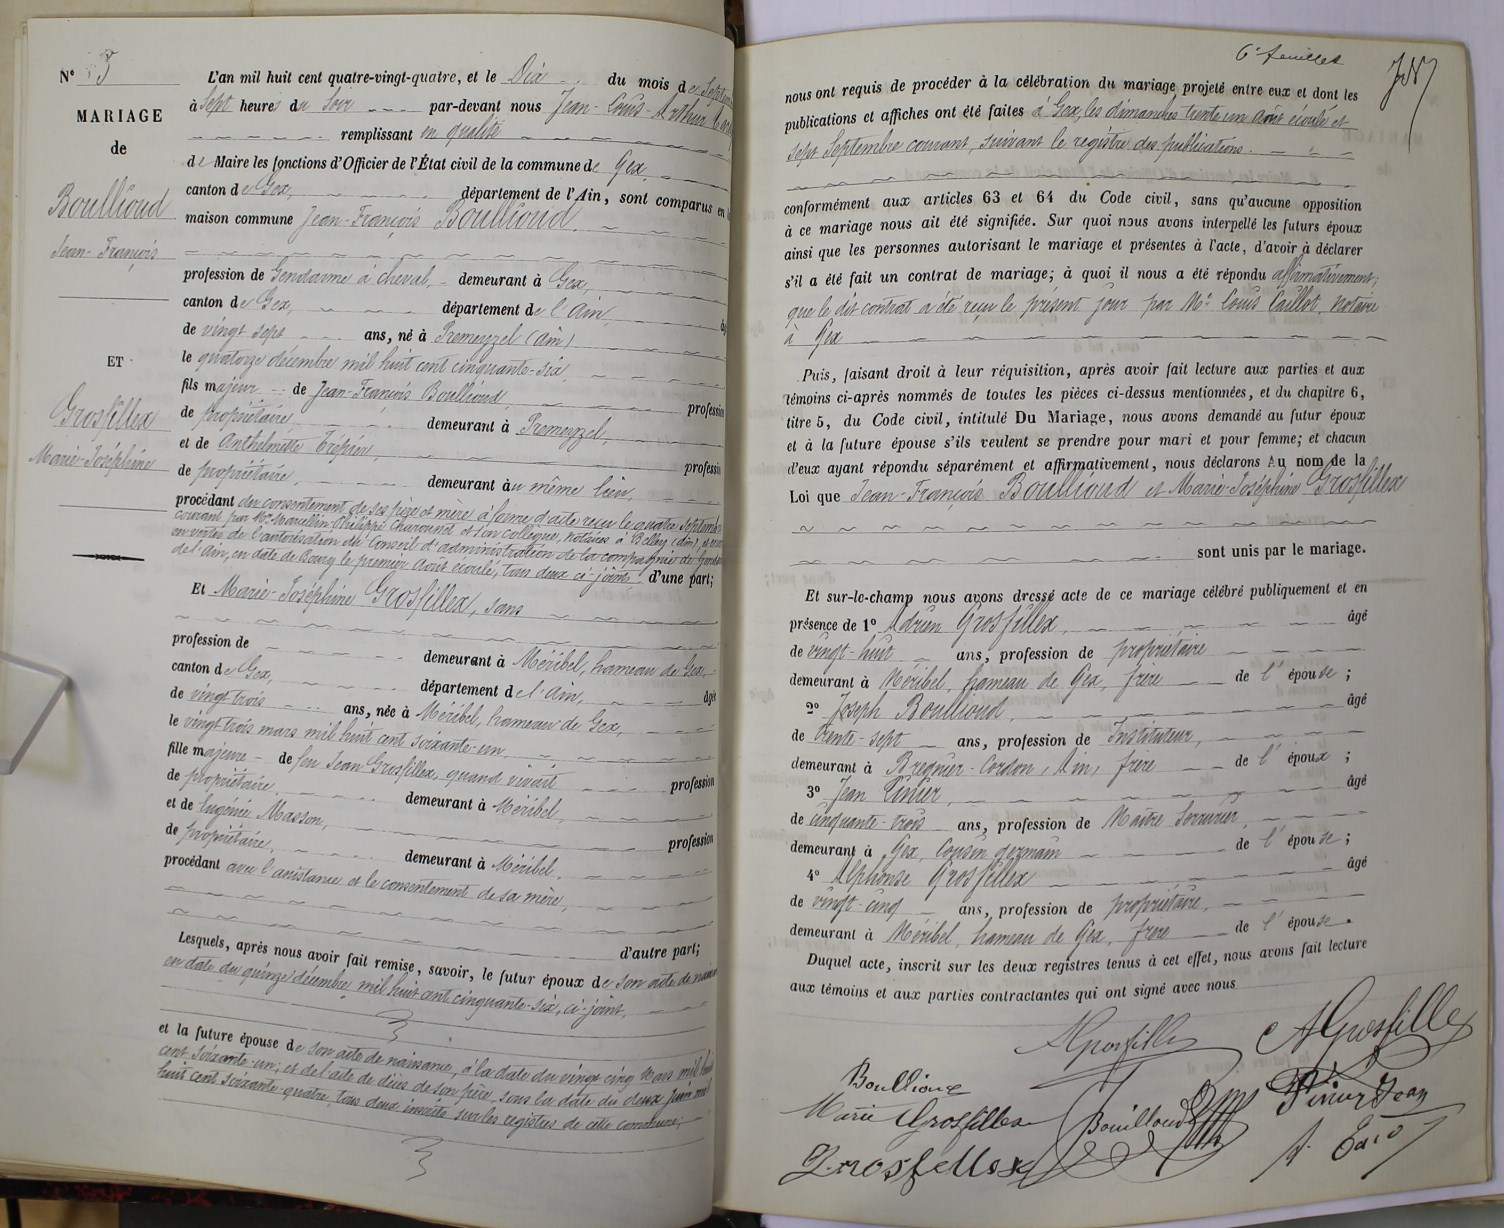 N° 3
MARIAGE
de
Boullioud
Jean-François
ET
Grosfillex
Marie-Joséphine
L'an mil huit cent quatre-vingt-quatre, et le Dix du mois de Septem
à Sept heures du Soir par-devant nous Jean-Louis-Arthur
remplissant en qualité
de Maire les fonctions d'Officier de l'État civil de la commune de Gex
canton de Gex, département de l'Ain, sont comparus en
maison commune Jean-François Boullioud
profession de Gendarme à cheval, demeurant à Gex,
canton de Gex, département de l'Ain
de vingt sept ans, né à Premeyzel (Ain)
le quatorze décembre mil huit cent cinquante-six,
fils majeur de Jean-François Boullioud, profession
de propriétaire, demeurant à Premeyzel,
et de Anthelmette Trépier, profession
de propriétaire, demeurant au même lieu,
procédant du consentement de ses père et mère à forme d'acte reçu le quatre Septembre
courant par Me Marcellin-Philippe Charvet et son collègue, notaires à Belley (Ain), et
en vertu de l'autorisation du Conseil d'administration de la compagnie de Gend
de l'Ain, en date de Bourg le premier Août écoulé, tous deux ci-joints d'une part;
Et Marie-Joséphine Grosfillex, sans
profession de demeurant à Méribel, hameau de Gex,
canton de Gex, département de l'Ain, âgée
de vingt-trois ans, née à Méribel, hameau de Gex,
le vingt-trois mars mil huit cent soixante-un,
fille majeure de feu Jean Grosfillex, quand vivait profession
de propriétaire, demeurant à Méribel,
et de Eugénie Masson, profession
de propriétaire, demeurant à Méribel.
procédant avec l'assistance et le consentement de sa mère,
d'autre part;
Lesquels, après nous avoir fait remise, savoir, le futur époux de son acte de naiss
en date du quinze décembre mil huit cent cinquante-six, ci-joint,
et la future épouse de son acte de naissance, à la date du vingt cinq Mars mil huit
cent soixante-un; et de l'acte de décès de son père, sous la date du deux juin mil
huit cent soixante-quatre, tous deux inscrits sur les registres de cette commune;
6e feuillet
nous ont requis de procéder à la célébration du mariage projeté entre eux et dont les
publications et affiches ont été faites à Gex, les dimanches trente un août écoulé et
sept Septembre courant, suivant le registre des publications.
conformément aux articles 63 et 64 du Code civil, sans qu'aucune opposition
à ce mariage nous ait été signifiée. Sur quoi nous avons interpellé les futurs époux
ainsi que les personnes autorisant le mariage et présentes à l'acte, d'avoir à déclarer
s'il a été fait un contrat de mariage; à quoi il nous a été répondu affirmativement,
que le dit contrat a été reçu le présent jour par Me Louis Caillot, notaire
à Gex
Puis, faisant droit à leur réquisition, après avoir fait lecture aux parties et aux
témoins ci-après nommés de toutes les pièces ci-dessus mentionnées, et du chapitre 6,
titre 5, du Code civil, intitulé Du Mariage, nous avons demandé au futur époux
et à la future épouse s'ils veulent se prendre pour mari et pour femme; et chacun
d'eux ayant répondu séparément et affirmativement, nous déclarons Au nom de la
Loi que Jean-François Boullioud et Marie-Joséphine Grosfillex
sont unis par le mariage.
Et sur-le-champ nous avons dressé acte de ce mariage célébré publiquement et en
présence de 1° Adrien Grosfillex, âgé
de vingt-huit ans, profession de propriétaire
demeurant à Méribel, hameau de Gex, frère de l'épouse;
2° Joseph Boullioud, âgé
de trente-sept ans, profession de Instituteur,
demeurant à Bregnier-Cordon, Ain, frère de l'époux;
3° Jean Pinier, âgé
de cinquante-trois ans, profession de Maître Serrurier,
demeurant à Gex, cousin germain de l'épouse;
4° Alphonse Grosfillex âgé
de vingt-cinq ans, profession de propriétaire,
demeurant à Méribel, hameau de Gex, frère de l'épouse.
Duquel acte, inscrit sur les deux registres tenus à cet effet, nous avons fait lecture
aux témoins et aux parties contractantes qui ont signé avec nous
AGrosfillex AGrosfillex
Boullioux
Marie Grosfillex Boullioud Pinier Jean
Grosfillex